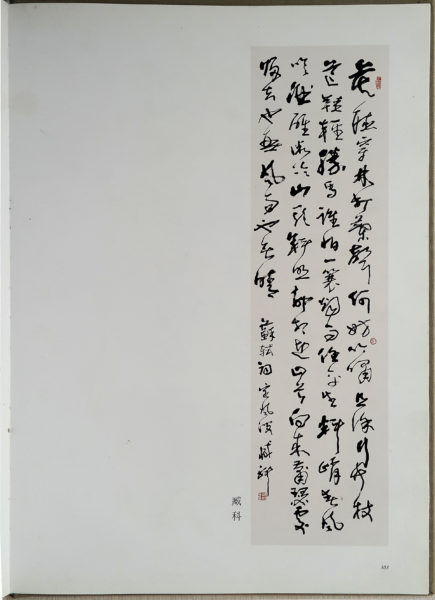 莫聽穿林打葉聲何妨吟嘯且徐行竹杖
芒鞋輕勝馬誰怕一蓑煙雨任平生料峭春風
吹酒醒微冷山頭斜照却相迎回首向來蕭瑟處
歸去也無風雨也無晴
蘇軾詞定風波臧科
臧科